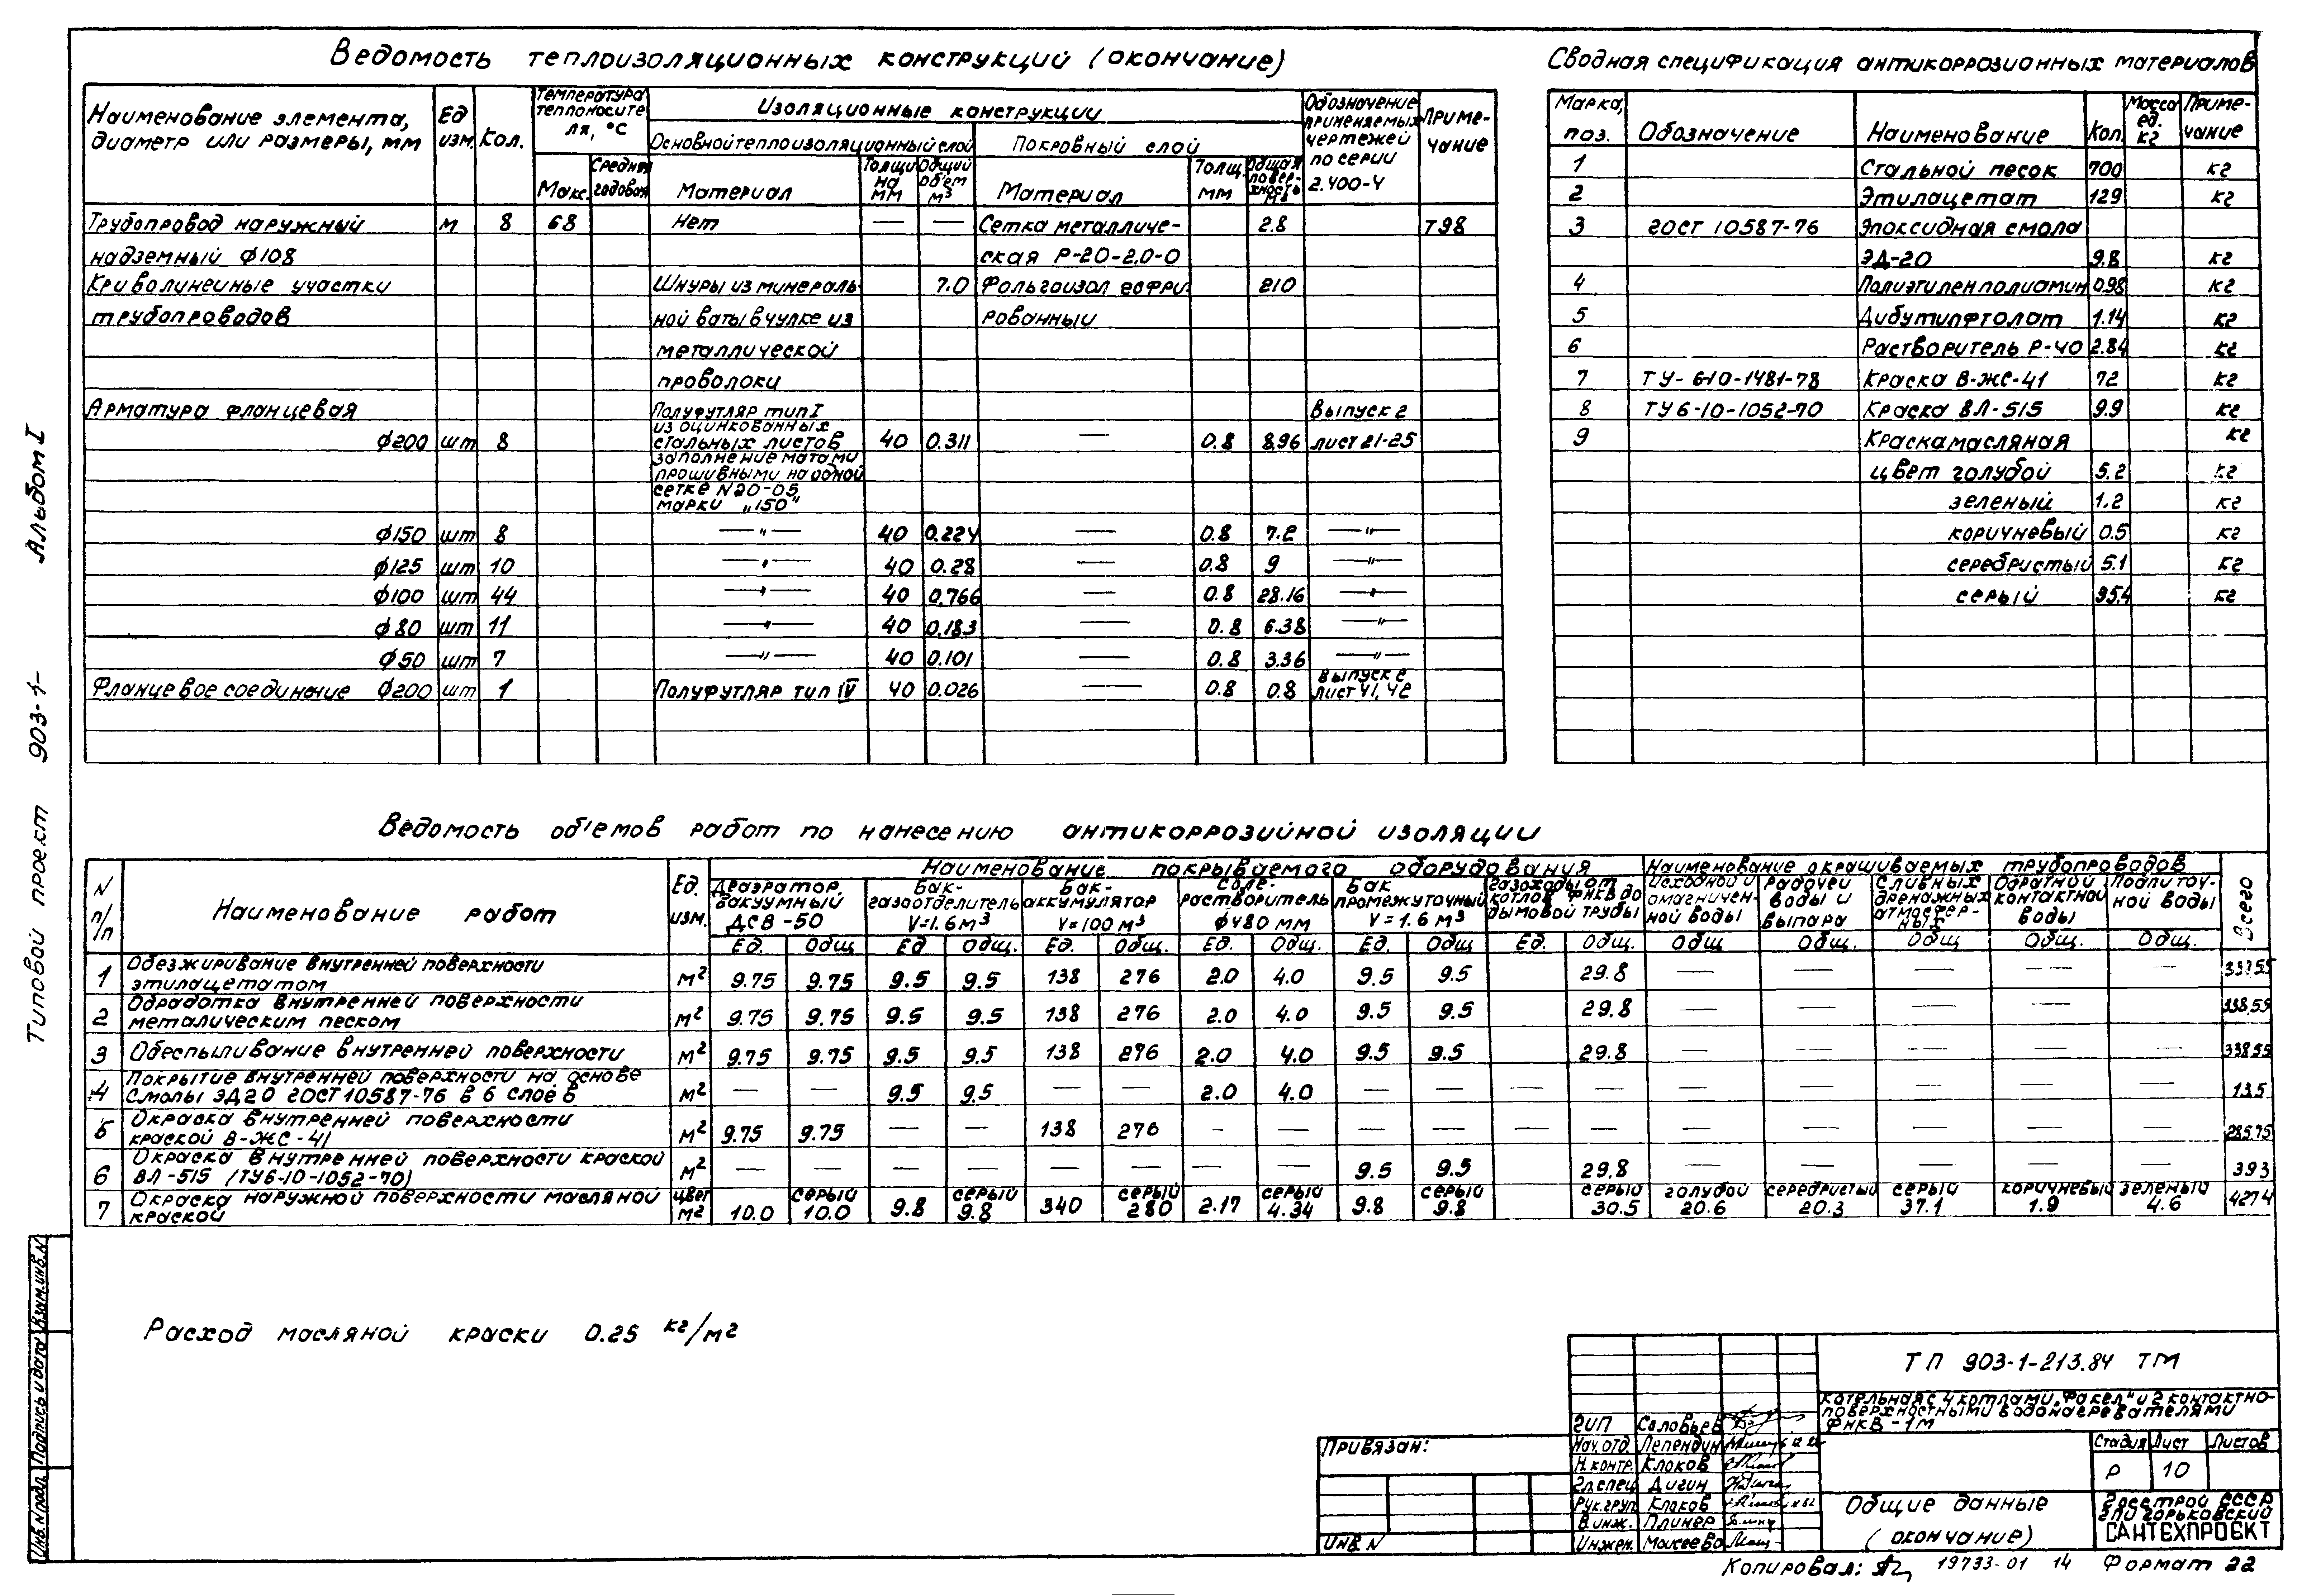 Ведомость теплоизоляционных конструкций (окончание)
Наименование элемента, диаметр или размеры, мм | Ед изм. | Кол. | Температура теплоносителя, °С | Изоляционные конструкции | Обозначение применяемых чертежей по серии 2.400-4 | Примечание
Основной теплоизоляционный слой | Покровный слой
Макс. | Средняя годовая | Материал | Толщина мм | Общий об'ем м³ | Материал | Толщ. мм | Общая поверхность м²
Трубопровод наружный | м | 8 | 68 | Нет | — | — | Сетка металличе- | 2.8 | Т98
надземный ф108 | ская Р-20-2.0-0
Криволинейные участки | Шнуры из минераль- | 7.0 | Фольгоизол гофри- | 210
трубопроводов | ной ваты в чулке из | рованный
металлической
проволоки
Арматура фланцевая | Полуфутляр тип I | Выпуск 2
из оцинкованных
ф200 | шт | 8 | стальных листов | 40 | 0.311 | — | 0.8 | 8.96 | лист 21-25
заполнение матами
прошивными на одной
сетке N20-05
марки „150"
ф150 | шт | 8 | —"— | 40 | 0.224 | — | 0.8 | 7.2 | —"—
ф125 | шт | 10 | —"— | 40 | 0.28 | — | 0.8 | 9 | —"—
ф100 | шт | 44 | —"— | 40 | 0.766 | — | 0.8 | 28.16 | —"—
ф80 | шт | 11 | —"— | 40 | 0.183 | — | 0.8 | 6.38 | —"—
ф50 | шт | 7 | —"— | 40 | 0.101 | — | 0.8 | 3.36 | —"—
Фланцевое соединение ф200 | шт | 1 | Полуфутляр тип IV | 40 | 0.026 | — | 0.8 | 0.8 | Выпуск 2 лист 41,42
Сводная спецификация антикоррозионных материалов
Марка, поз. | Обозначение | Наименование | Кол. | Масса ед. кг | Примечание
1 | Стальной песок | 700 | кг
2 | Этилацетат | 129 | кг
3 | ГОСТ 10587-76 | Эпоксидная смола
ЭД-20 | 9.8 | кг
4 | Полиэтиленполиамин | 0.98 | кг
5 | Дибутилфтолат | 1.14 | кг
6 | Растворитель Р-40 | 2.84 | кг
7 | ТУ-6-10-1481-78 | Краска В-ЖС-41 | 72 | кг
8 | ТУ6-10-1052-70 | Краска ВЛ-515 | 9.9 | кг
9 | Краска масляная | кг
цвет голубой | 5.2 | кг
зеленый | 1.2 | кг
коричневый | 0.5 | кг
серебристый | 5.1 | кг
серый | 95.4 | кг
Ведомость об'емов работ по нанесению антикоррозийной изоляции
N п/п | Наименование работ | Ед. изм. | Наименование покрываемого оборудования | Наименование окрашиваемых трубопроводов | Всего
Деаэратор вакуумный ДСВ-50 | Бак-газоотделитель V=1.6м³ | Бак-аккумулятор V=100м³ | Солерастворитель ф480 мм | Бак промежуточный V=1.6м³ | Газоходы от котлов ФНКВ до дымовой трубы | Исходной и омагниченной воды | Рабочей воды и выпара | Сливных дренажных атмосферных | Обратной контактной воды | Подпиточной воды
Ед. | Общ | Ед | Общ. | Ед. | Общ. | Ед. | Общ. | Ед. | Общ | Ед. | Общ. | Общ | Общ. | Общ | Общ. | Общ.
1 | Обезжиривание внутренней поверхности этилацетатом | м² | 9.75 | 9.75 | 9.5 | 9.5 | 138 | 276 | 2.0 | 4.0 | 9.5 | 9.5 | 29.8 | — | — | — | — | —
2 | Обработка внутренней поверхности металическим песком | м² | 9.75 | 9.75 | 9.5 | 9.5 | 138 | 276 | 2.0 | 4.0 | 9.5 | 9.5 | 29.8 | — | — | — | — | — | 338.55
3 | Обеспыливание внутренней поверхности | м² | 9.75 | 9.75 | 9.5 | 9.5 | 138 | 276 | 2.0 | 4.0 | 9.5 | 9.5 | 29.8 | — | — | — | — | — | 338.55
4 | Покрытие внутренней поверхности на основе смолы ЭД20 ГОСТ 10587-76 в 6 слоев | м² | — | — | 9.5 | 9.5 | — | — | 2.0 | 4.0 | — | — | — | — | — | — | — | — | 13.5
5 | Окраска внутренней поверхности краской В-ЖС-41 | м² | 9.75 | 9.75 | — | — | 138 | 276 | — | — | — | — | — | — | — | — | — | — | 285.75
6 | Окраска внутренней поверхности краской ВЛ-515 (ТУ6-10-1052-70) | м² | — | — | — | — | — | — | — | — | 9.5 | 9.5 | 29.8 | — | — | — | — | — | 39.3
7 | Окраска наружной поверхности масляной краской | цвет м² | 10.0 | серый 10.0 | 9.8 | серый 9.8 | 340 | серый 280 | 2.17 | серый 4.34 | 9.8 | серый 9.8 | серый 30.5 | голубой 20.6 | серебристый 20.3 | серый 37.1 | коричневый 1.9 | зеленый 4.6 | 427.4
Расход масляной краски 0.25 кг/м²
Типовой проект 903-1- Альбом I
Инв.N подл. Подпись и дата Взам.инв.N
Привязан:
Инв N
ГИП Соловьев
Нач. отд. Лепендин
Н.контр. Клоков
Гл.спец Дигин
Рук.груп Клоков
В.инж. Плинер
Инжен. Моисеева
ТП 903-1-213.84 ТМ
Котельная с 4 котлами „Факел" и 2 контактно-
поверхностными водонагревателями
ФНКВ-1М
Стадия Лист Листов
Р 10
Общие данные
(окончание)
Госстрой СССР
ГПИ Горьковский
САНТЕХПРОЕКТ
Копировал: 19733-01 14 Формат 22